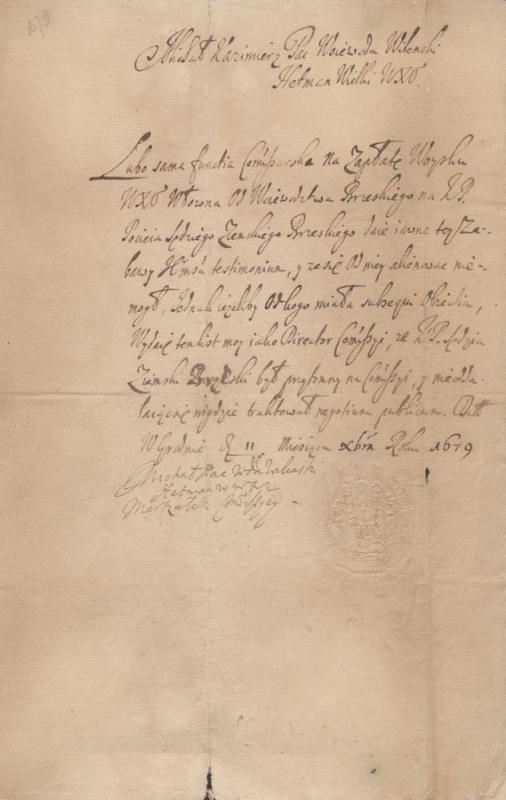 1679
Michał Kazimierz Pac Woiewoda Wilenski
Hetman Wielki WXL.
Lubo sama functia Comissarska na Zapłatę Woysku
WXL włozona od Woiewodztwa Brzeskiego na JP.
Pocieia Sędziego Ziemskiego Brzeskiego daie iawne tey Za-
bawy testimonium, y ze się od niey alienowac nie-
mogł, Jednak ieżeliby od kogo miała subsequi obiectia,
Wydaię ten list moy iako Director Comissyi, ze JP. Sędzia
Ziemski Brzeski był przytomny na Comissyi, y nieodda-
laiąc się nigdzie traktował negotium publicum. Datt
W Grodnie D. 11 Miesiąca Xbra Roku 1679
Michał Pac Wda Wilenski
Hetman W W X L
Marszałek Comissyey